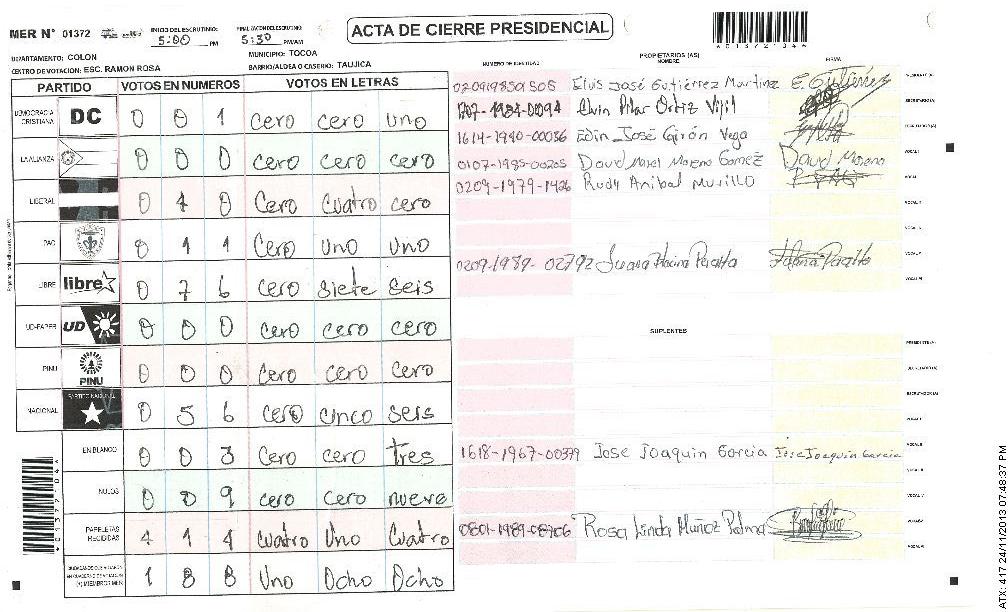 MER N° 01372
INICIO DEL ESCRUTINIO: 5:00 PM
5:30 PM/AM
ACTA DE CIERRE PRESIDENCIAL
DEPARTAMENTO: COLON
MUNICIPIO: TOCOA
CENTRO DE VOTACION: ESC. RAMON ROSA
BARRIO/ALDEA O CASERIO: TAUJICA
NUMERO DE IDENTIDAD PROPIETARIOS (AS) NOMBRE FIRMA
PARTIDO VOTOS EN NUMEROS VOTOS EN LETRAS
DEMOCRACIA CRISTIANA DC 0 0 1 cero cero uno
LA ALIANZA 0 0 0 cero cero cero
LIBERAL 0 4 0 Cero Cuatro cero
PAC 0 1 1 Cero uno uno
LIBRE libre 0 7 6 cero siete seis
UD-FAPER UD 0 0 0 cero cero cero
PINU PINU 0 0 0 Cero Cero Cero
NACIONAL PARTIDO NACIONAL 0 5 6 cero cinco seis
EN BLANCO 0 0 3 Cero cero tres
NULOS 0 0 9 cero cero nueve
PAPELETAS RECIBIDAS 4 1 4 Cuatro Uno Cuatro
1 8 8 Uno Ocho Ocho
0209198501505 Elvis José Gutiérrez Martinez E. Gutierrez
Elvin Pilar Ortiz Vijil
1614-1990-00036 Edin José Girón Vega
0107-1985-00205 David Moreno Gomez David Moreno
0209-1979-1426 Rudy Anibal Murillo
0209-1989-02792 Peralta Peralta
SUPLENTES
1618-1967-00379 Jose Joaquin Garcia Jose Joaquin Garcia
0801-1989-08706 Rosa Linda Muñoz Palma
ATX: 417 24/11/2013 07:48:37 PM